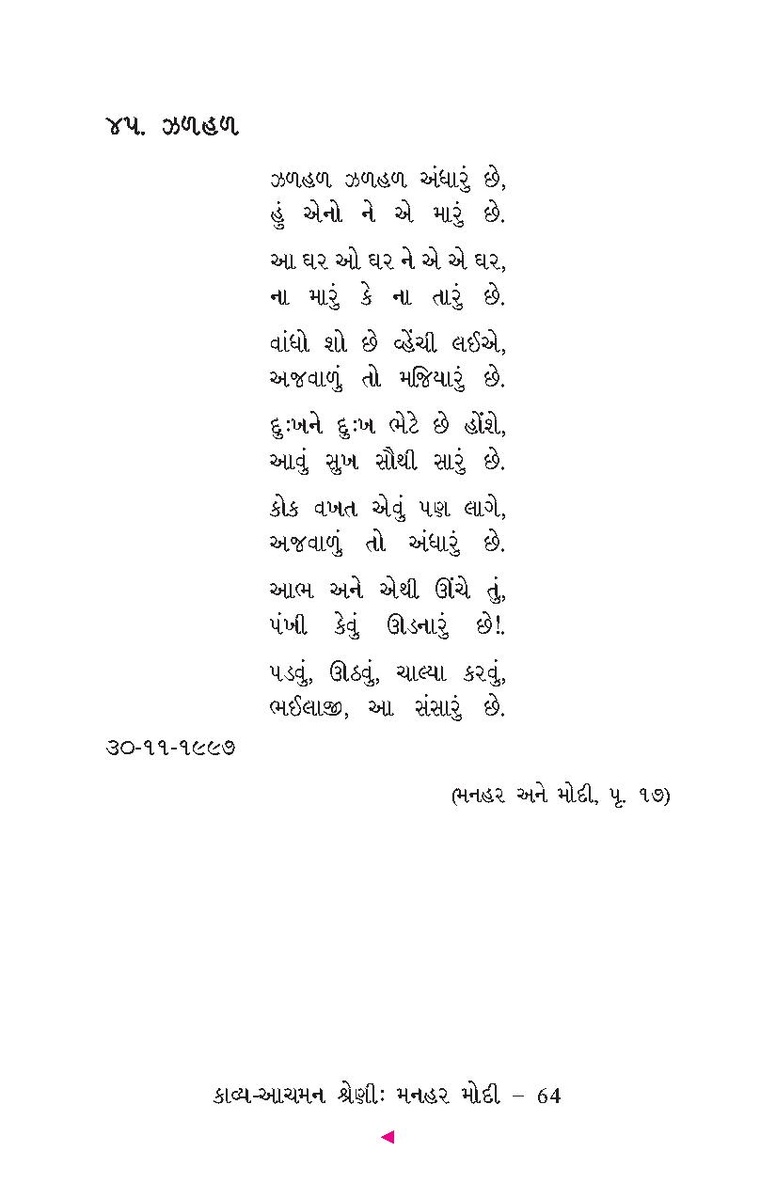 ૪૫. ઝળહળ
ઝળહળ ઝળહળ અંધારું છે,
હું એનો ને એ મારું છે.
આ ઘર ઓ ઘર ને એ એ ઘર,
ના મારું કે ના તારું છે.
વાંધો શો છે વ્હેંચી લઈએ,
અજવાળું તો મજિયારું છે.
દુઃખને દુઃખ ભેટે છે હોંશે,
આવું સુખ સૌથી સારું છે.
કોક વખત એવું પણ લાગે,
અજવાળું તો અંધારું છે.
આભ અને એથી ઊંચે તું,
પંખી કેવું ઊડનારું છે!.
પડવું, ઊઠવું, ચાલ્યા કરવું,
ભઈલાજી, આ સંસારું છે.
૩૦-૧૧-૧૯૯૭
(મનહર અને મોદી, પૃ. ૧૭)
કાવ્ય-આચમન શ્રેણીઃ મનહર મોદી – 64